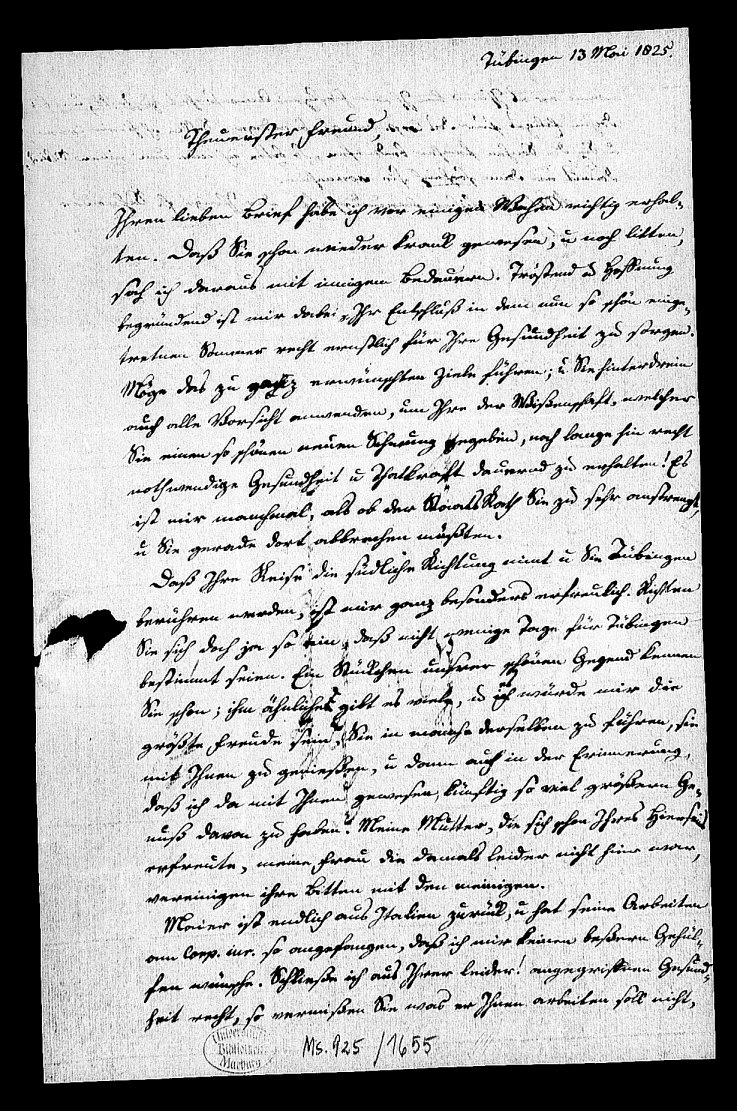 Tübingen 13 Mai 1825.
Theuerster Freund,
Ihren lieben Brief habe ich vor einigen Wochen richtig erhal-
ten. Daß Sie schon wieder krank gewesen, u noch litten,
sah ich daraus mit innigem Bedauern. Tröstend u Hoffnung
begründend ist mir dabei, Ihr Entschluß in dem nun so schön einge-
tretnen Sommer recht ernstlich für Ihre Gesundheit zu sorgen.
Möge das zu ganz erwünschten Ziele führen; u Sie hinterdrein
auch alle Vorsicht anwenden, um Ihre der Wißenschaft, welcher
Sie einen so schönen neuen Schwung gegeben, noch lange hin recht
nothwendige Gesundheit u Thatkraft dauernd zu erhalten! Es
ist mir manchmal, als ob der StaatsRath Sie zu sehr anstrenge,
u Sie gerade dort abbrechen müßten.
Daß Ihre Reise die südliche Richtung nimt u Sie Tübingen
berühren werden, ist mir ganz besonders erfreulich. Richten
Sie sich doch ja so ein, daß nicht wenige Tage für Tübingen
bestimmt seien. Ein Stückchen unsrer schönen Gegend kennen
Sie schon; ihm ähnliches gibt es viele, u es würde mir die
größte Freude sein, Sie in manche derselben zu führen, sie
mit Ihnen zu genießen, u dann auch in der Erinnerung,
daß ich da mit Ihnen gewesen, künftig so viel größern Ge-
nuß davon zu haben. Meine Mutter, die sich schon Ihres Hierseins
erfreute, meine Frau die damals leider nicht hier war,
vereinigen ihre Bitten mit den meinigen.
Maier ist endlich aus Italien zurück, u hat seine Arbeiten
am Corp. iur. so angefangen, daß ich mir keinen beßern Gehül-
fen wünsche. Schließe ich aus Ihrer leider! angegriffnen Gesund-
heit recht, so vermißen Sie was er Ihnen arbeiten soll nicht,
Universitäts
Bibliothek
Marburg
Ms. 925 / 1655